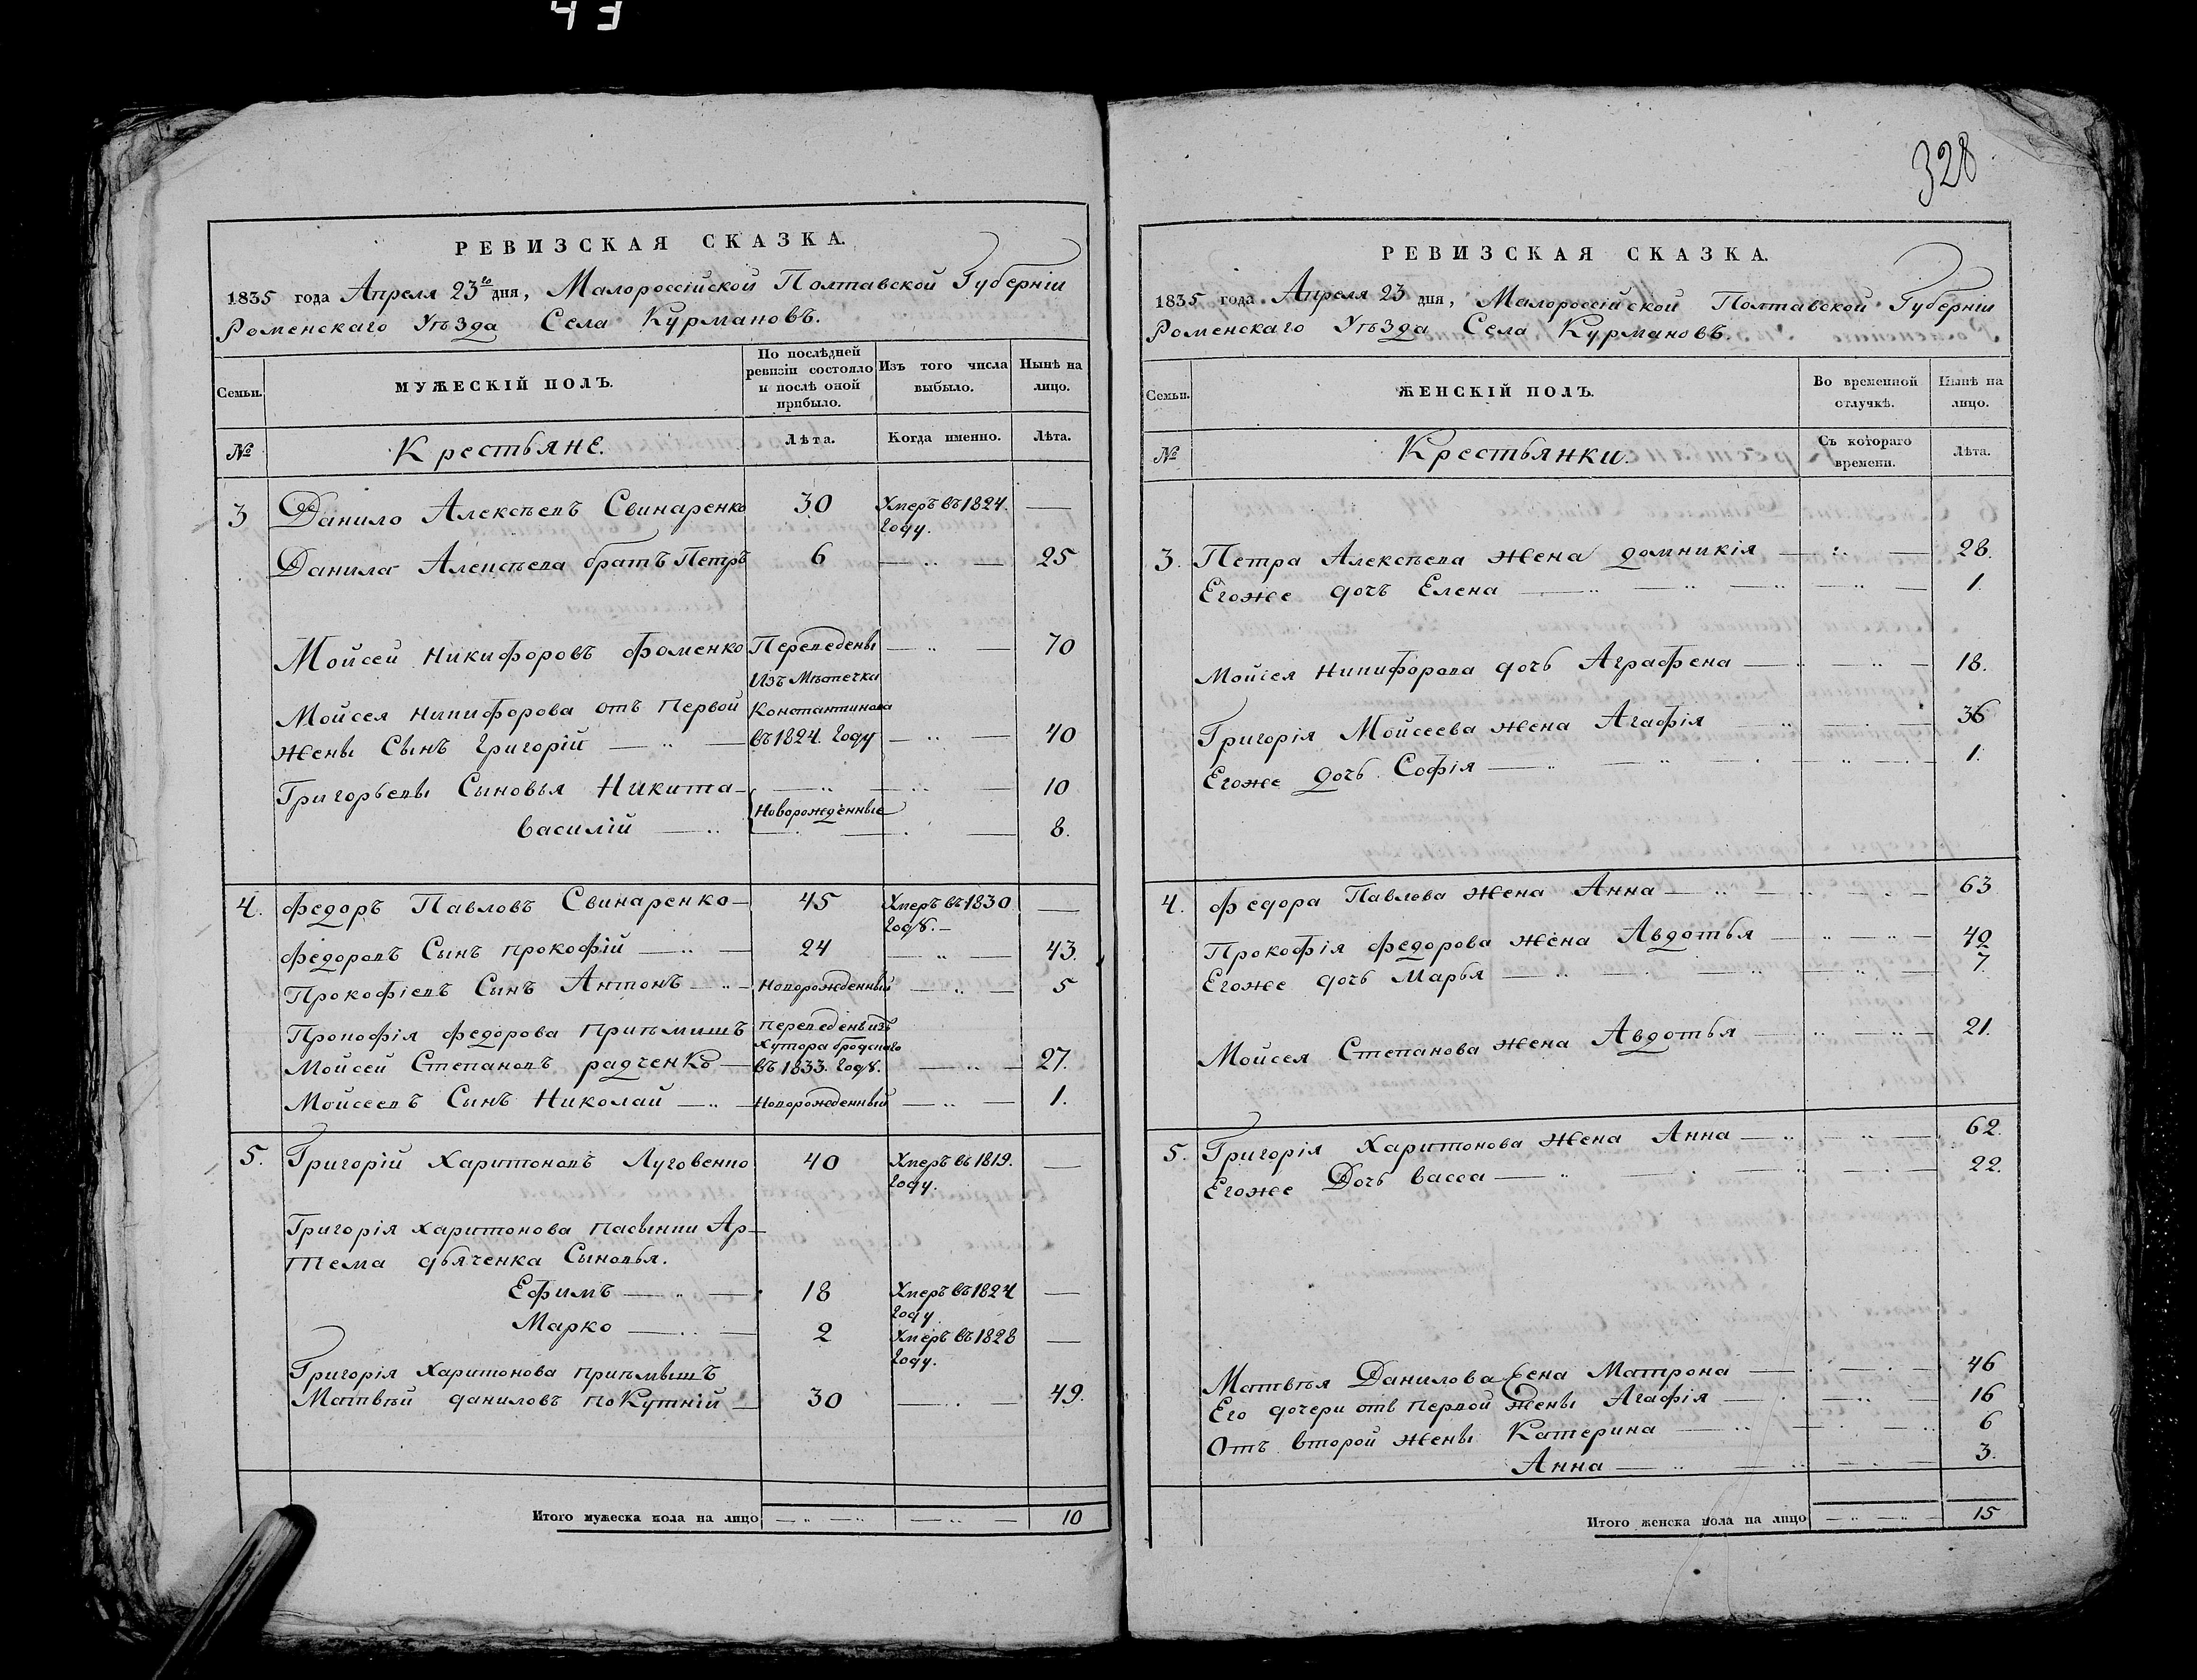 43
РЕВИЗСКАЯ СКАЗКА.
1835 года Апреля 23го дня, Малороссійской Полтавской Губерніи
Роменскаго Уѣзда Села Курмановъ.
Семьи.
МУЖЕСКІЙ ПОЛЪ.
По послѣдней ревизіи состояло и послѣ оной прибыло.
Изъ того числа выбыло.
Нынѣ на лицо.
№
Крестьяне.
Лѣта.
Когда именно.
Лѣта.
3 Данило Алексѣевъ Свинаренко 30 Умеръ въ 1824. —
году.
Данила Алексѣева братъ Петръ 6 — 25
Мойсей Никифоровъ Фоменко Переведены — 70
Изъ Мѣстечка
Мойсея Никифорова отъ первой Константинова
жены Сынъ Григорій — въ 1824. году — 40
Григорьевы Сыновья Никита — 10
Новорожденные
Василій — 8.
4. Федоръ Павловъ Свинаренко — 45 Умеръ въ 1830 —
году. —
Федоровъ Сынъ Прокофій — 24 — 43.
Прокофіевъ Сынъ Антонъ — Новорожденный — 5
Прокофія Федорова Пріѣмишъ переведенъ изъ
Хутора бродскаго
Мойсей Степановъ радченко — въ 1833. году. — 27.
Мойсеевъ Сынъ Николай — Новорожденный — 1.
5. Григорій Харитоновъ Луговенко 40 Умеръ въ 1819. —
году.
Григорія Харитонова пасынки Ар-
тема дьяченка Сыновья.
Ефимъ — 18 Умеръ въ 1824 —
году
Марко — 2 Умеръ въ 1828 —
году.
Григорія Харитонова пріѣмышъ
Матвѣй даниловъ покутній — 30 — 49.
Итого мужеска пола на лицо — — 10
328
РЕВИЗСКАЯ СКАЗКА.
1835 года Апреля 23 дня, Малороссійской Полтавской Губерніи
Роменскаго Уѣзда Села Курмановъ.
Семьи.
ЖЕНСКІЙ ПОЛЪ.
Во временной отлучкѣ.
Нынѣ на лицо.
№
Крестьянки.
Съ котораго времени.
Лѣта.
3. Петра Алексѣева жена домникія — 28.
Егоже дочъ Елена — 1.
Мойсея Никифорова дочь Аграфена — 18.
Григорія Мойсеева жена Агафія — 36
Егоже дочь Софія — 1.
4. Федора Павлова жена Анна — 63
Прокофія Федорова жена Авдотья — 40
Егоже дочь Марья — 7
Мойсея Степанова жена Авдотья — 21.
5. Григорія Харитонова жена Анна — 62.
Егоже Дочь васса — 22.
Матвѣя Данилова жена Матрона — 46
Его дочери отъ первой жены Агафія — 16
Отъ второй жены Катерина — 6
Анна — 3.
Итого женска пола на лицо — 15